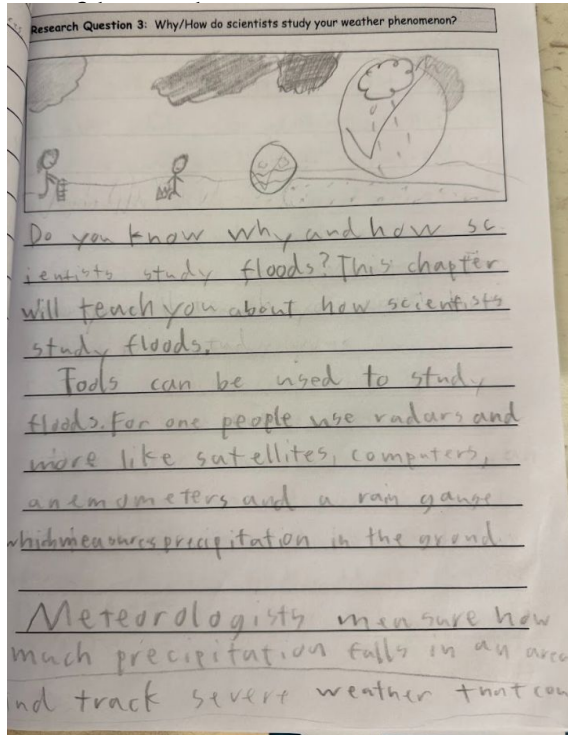 Research Question 3: Why/How do scientists study your weather phenomenon?
Do you know why and how sc
ientists study floods? This chapter
will teach you about how scientists
study floods.
Tools can be used to study
floods. For one people use radars and
more like satellites, computers,
anemometers and a rain gauge
which measures precipitation in the ground.
Meteorologists measure how
much precipitation falls in an area
nd track severe weather that cou